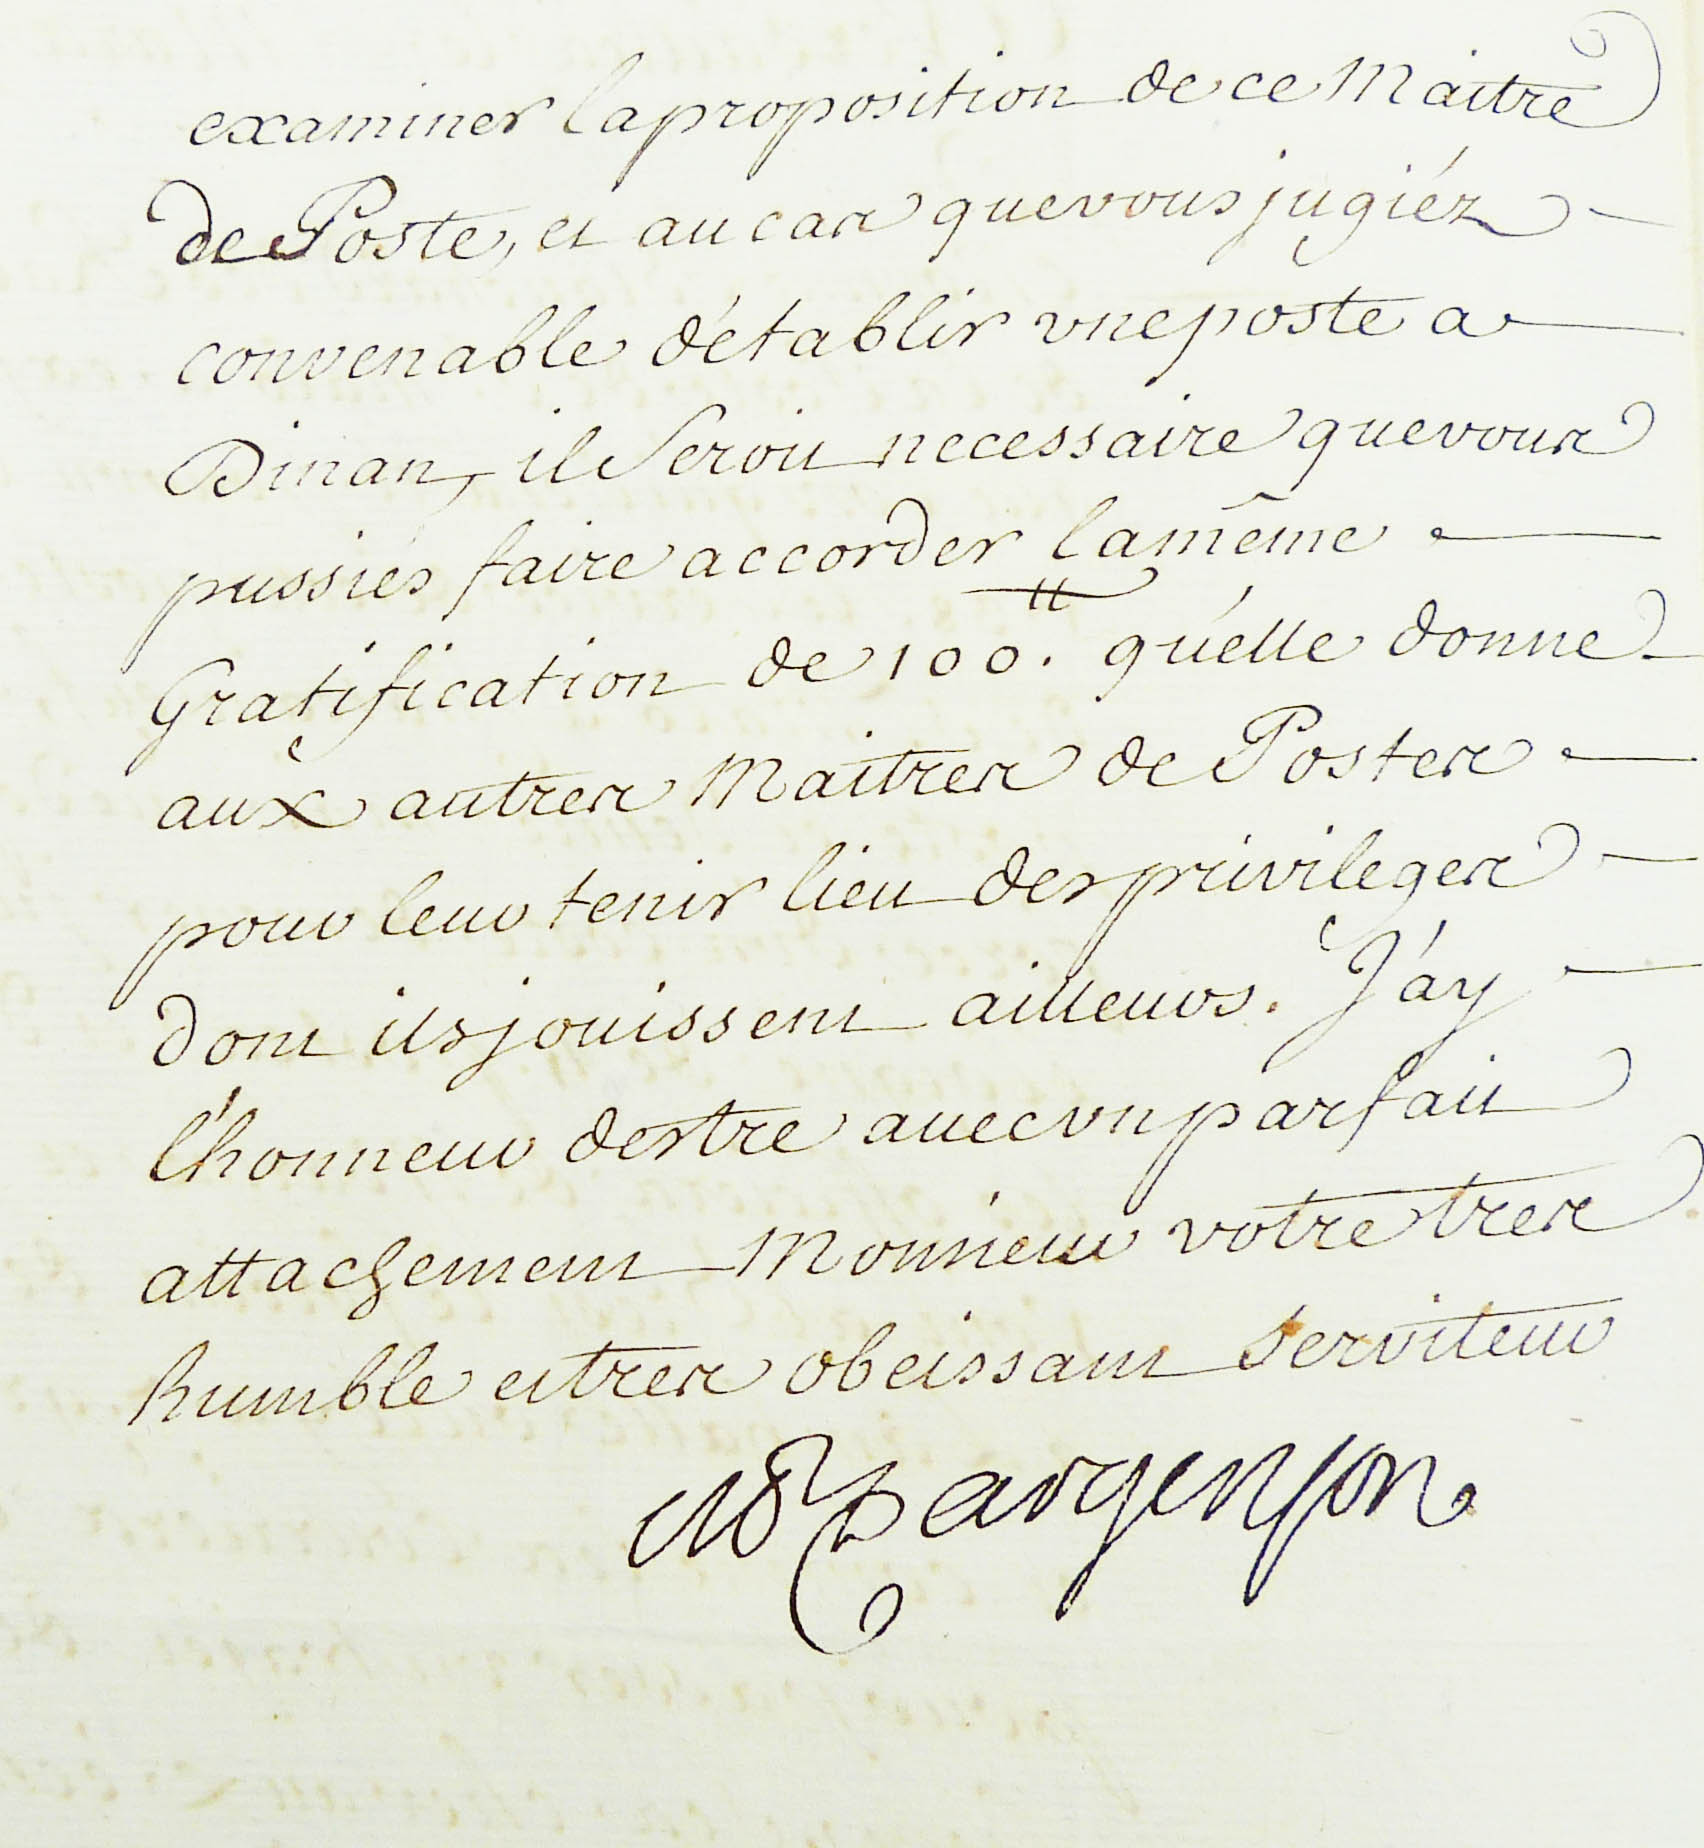 examiner la proposition de ce Maitre
de Poste, et au cas que vous jugiéz
convenable d'établir vne poste a
Dinan, il Seroit necessaire que vous
pussiés faire accorder la même
Gratification de 100.tt qu'elle donne
aux autres Maitres de Postes
pour leur tenir lieu des privileges
dont ils jouissent ailleurs. J'ay
l'honneur destre auec vn parfait
attachement Monsieur votre tres
humble et tres obeissant serviteur
M D argenson